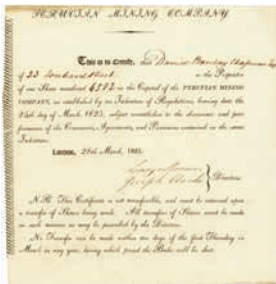 PERUVIAN MINING COMPANY
This is to Certify, that David Barclay Chapman Esq
of 33 Lombard Street is the Proprietor
of one Share numbered 4292 in the Capital of the PERUVIAN MINING
COMPANY, as established by an Indenture of Regulations, bearing date the
24th day of March, 1825, subject nevertheless to the observance and per-
formance of the Covenants, Agreements, and Provisions contained in the same
Indenture.
London, March, 1825.
Directors.
N.B. This Certificate is not transferable, and must be returned upon
a transfer of Shares being made. All transfers of Shares must be made
in such manner as may be provided by the Directors.
No Transfer can be made within ten days of the first Thursday in
March in any year, during which period the Books will be shut.